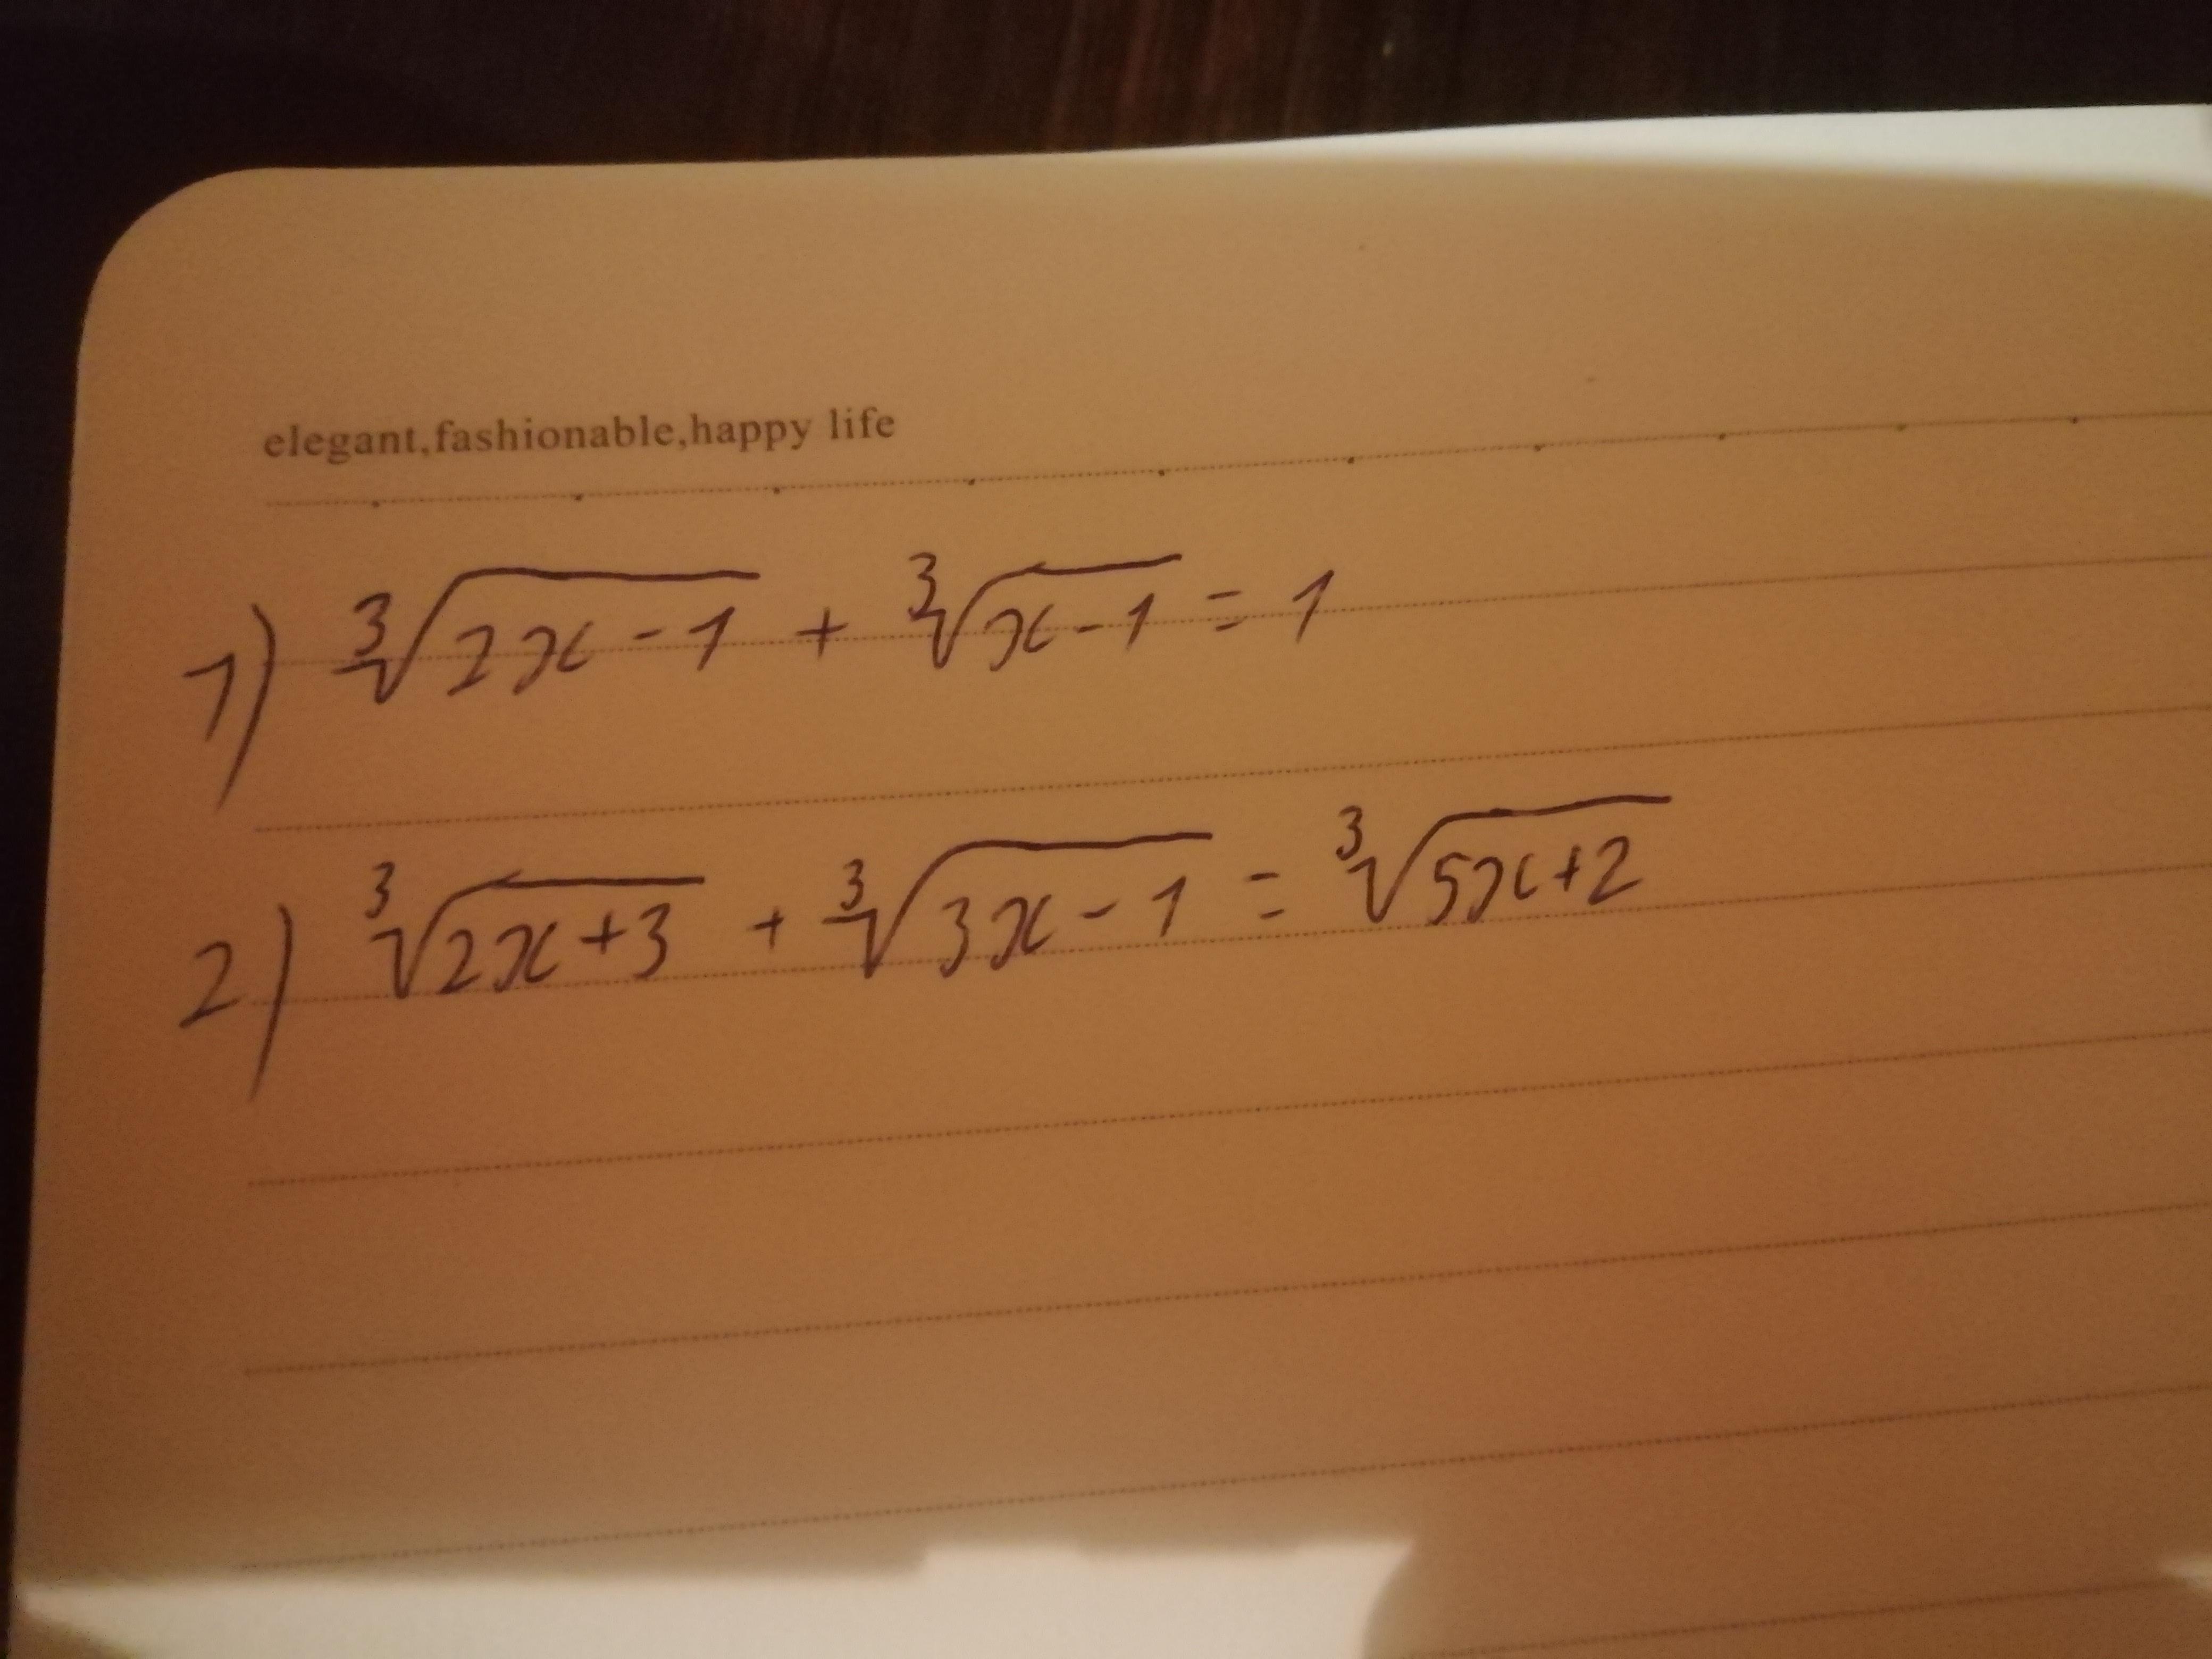 elegant,fashionable,happy life
1) ∛(2x-1) + ∛(x-1) = 1
2) ∛(2x+3) + ∛(3x-1) = ∛(5x+2)